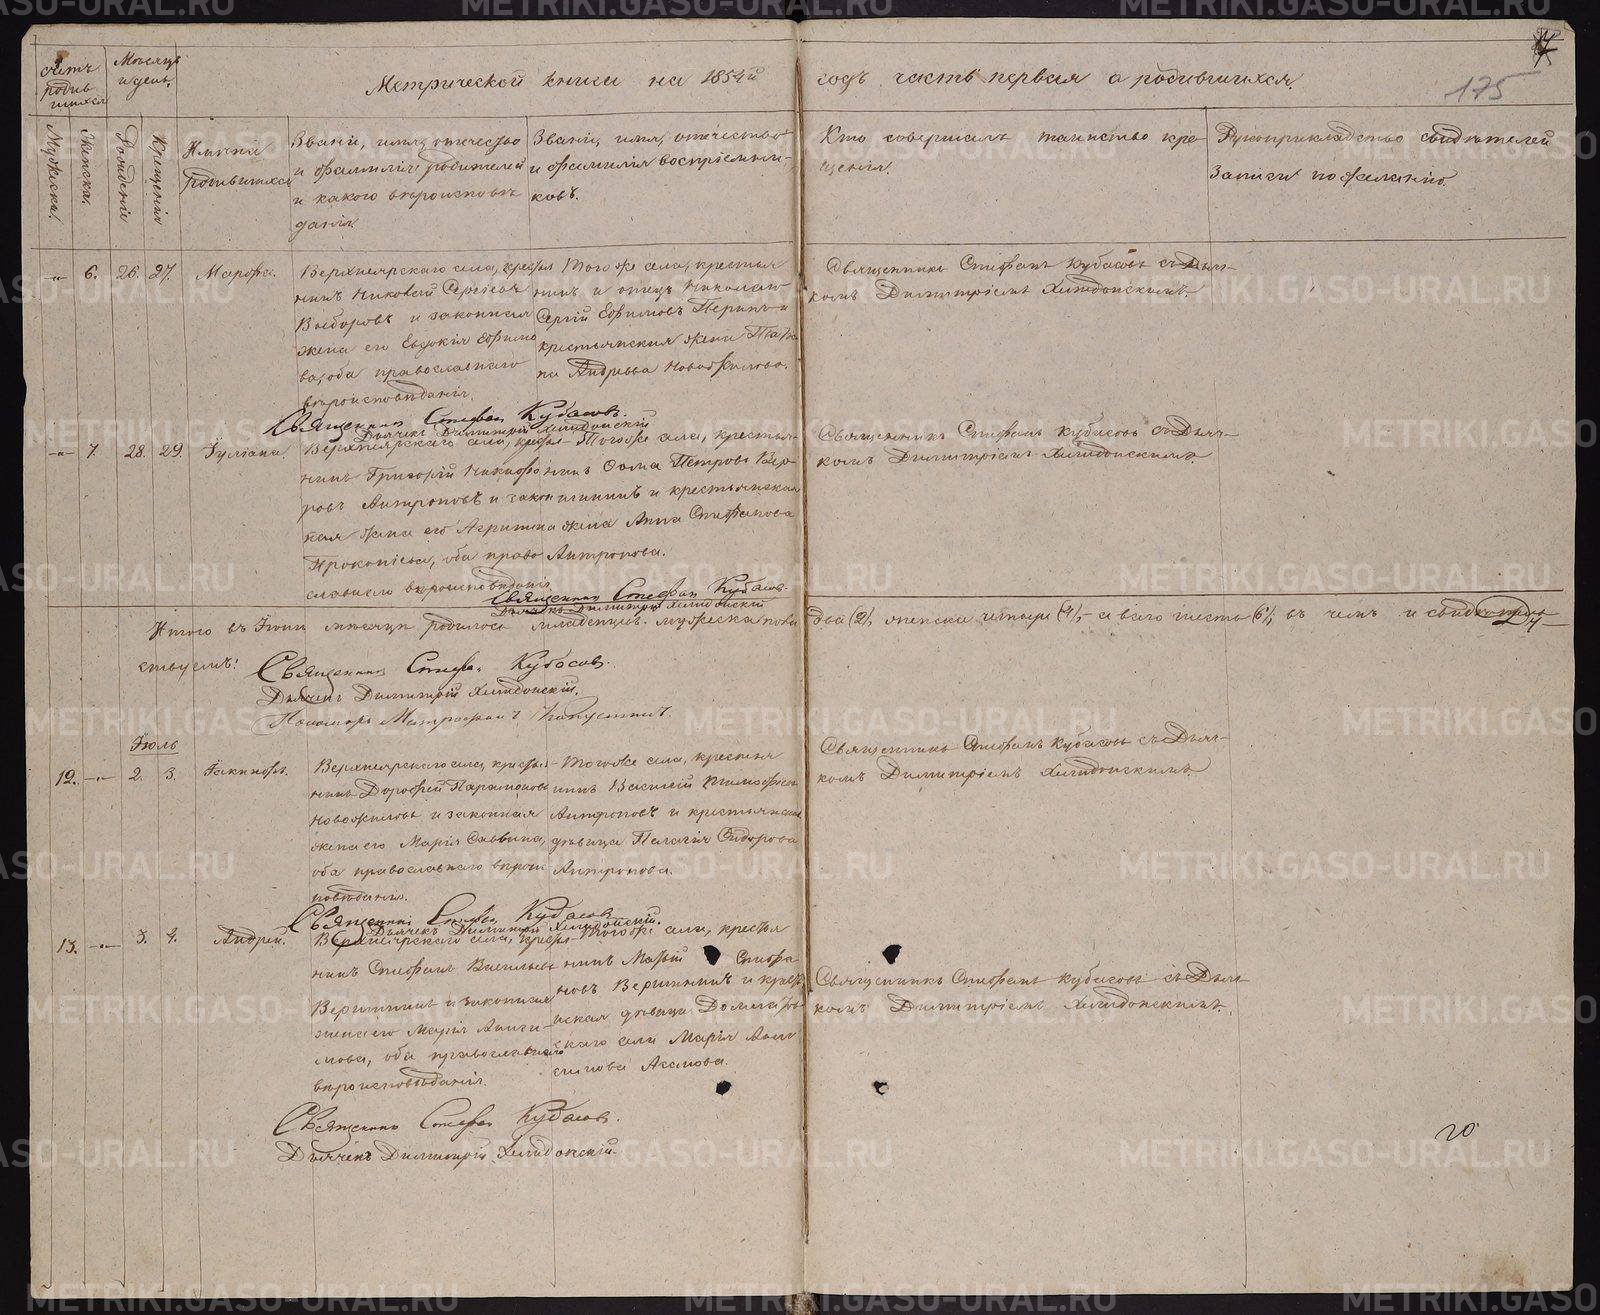 Метрической книги на 1854й годъ часть первая о родившихся.
175
счетъ родив шихся
Мѣсяцъ и день.
Мужеска.
Женска.
Рожденія
Крещенія
Имена родившихся
Званіе, имя, отечество
и фамилія родителей
и какого вѣроисповѣ
данія.
Званіе, имя, отечество
и фамилія воспріемни-
ковъ.
Кто совершалъ таинство кре-
щенія.
Рукоприкладство свидѣтелей
записи по желанію.
6. 26. 27. Марѳа.
Верхнеярскаго села, кресть
нинъ Сергіевъ
Выборовъ и законная
жена его Евдокія Ефимо
ва, оба православнаго
вѣроисповѣданія.
Того же села, крестья
нинъ и отецъ
Сергій Ефимовъ
крестьянская жена
Андреева
Священникъ Стефанъ Кубасовъ съ Дьяч-
комъ Димитріемъ Хлыдонскимъ.
Священникъ Стефан Кубасовъ.
Дьячекъ Димитрій Хлыдонскій
7. 28. 29. Іуліана.
Верхнеярскаго села, кресть
нинъ Григорій Никифо
ровъ Антроповъ и закон
ная жена его Агрипина
Прокопіева, оба право
славнаго вѣроисповѣданія
Того же села, крестья-
нинъ Ѳома Петровъ Вер
шининъ и крестьянская
жена Анна Стефанова
Антропова.
Священникъ Стефанъ Кубасовъ съ Дьяч-
комъ Димитріемъ Хлыдонскимъ.
Священник Стефан Кубасов.
Дьячекъ Димитрій Хлыдонскій
Итого въ Іюнѣ мѣсяцѣ родилось младенцевъ мужеска пола два (2), женска четыре (4), а всего шесть (6), въ чемъ и свидѣтель
ствуемъ:
Священникъ Стефан Кубасовъ.
Дьячекъ Димитрій Хлыдонскій.
Пономарь Митрофанъ Капустинъ.
Іюль
12. 2. 3. Іакинѳъ.
Верхнеярскаго села, кресть
нинъ Дороѳей Парамоновъ
Новожиловъ и законная
жена его Марія Саввина,
оба православнаго вѣроис
повѣданія.
Того же села, крестья
нинъ Василій Тимоѳеевъ
Антроповъ и крестьянская
дѣвица Пелагія Сидорова
Антропова.
Священникъ Стефанъ Кубасовъ съ Дьяч-
комъ Димитріемъ Хлыдонскимъ.
Священникъ Стефан Кубасовъ
Дьячекъ Димитрій Хлыдонскій.
13. 3. 4. Андрей.
Верхнеярскаго села, кресть
нинъ Стефанъ Васильевъ
Вершининъ и законная
жена его Марія
оба православнаго
вѣроисповѣданія.
Того же села, крестья
нинъ Стефа
новъ Вершининъ и кресть
янская дѣвица
скаго села Марія
Асамова.
Священникъ Стефанъ Кубасовъ съ Дьяч
комъ Димитріемъ Хлыдонскимъ.
Священникъ Стефан Кубасовъ.
Дьячекъ Димитрій Хлыдонскій.
20
METRIKI.GASO-URAL.RU